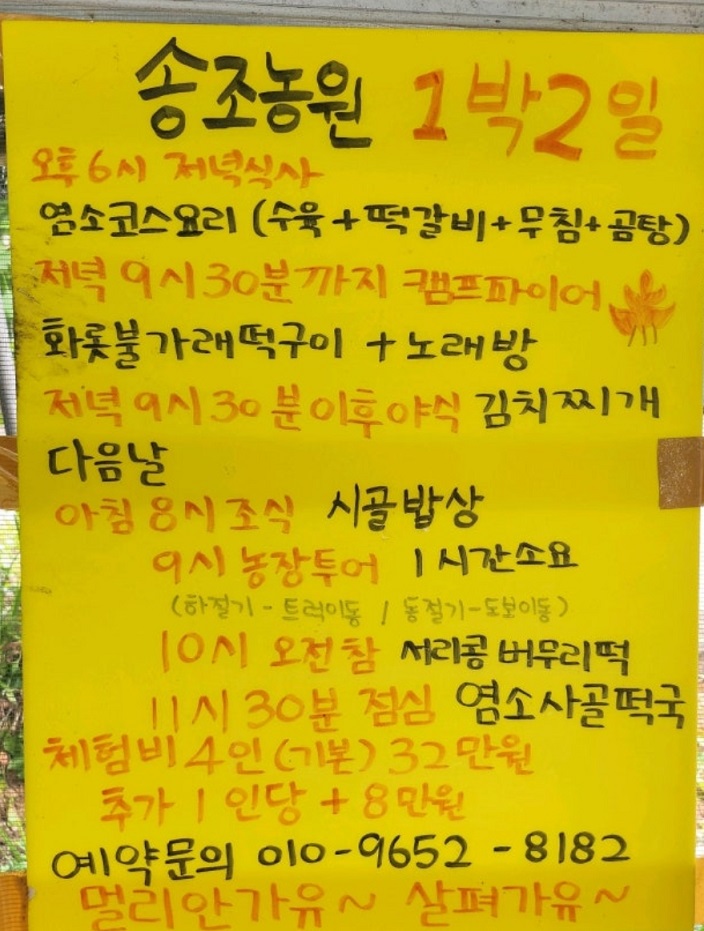 송조농원 1박2일
오후6시 저녁식사
염소코스요리 (수육+떡갈비+무침+곰탕)
저녁 9시30분까지 캠프파이어
화롯불가래떡구이 + 노래방
저녁 9시30분이후야식 김치찌개
다음날
아침 8시 조식 시골밥상
9시 농장투어 1시간소요
(하절기-트럭이동 / 동절기-도보이동)
10시 오전참 서리콩버무리떡
11시30분 점심 염소사골떡국
체험비4인(기본) 32만원
추가 1인당 +8만원
예약문의 010-9652-8182
멀리안가유~ 살펴가유~